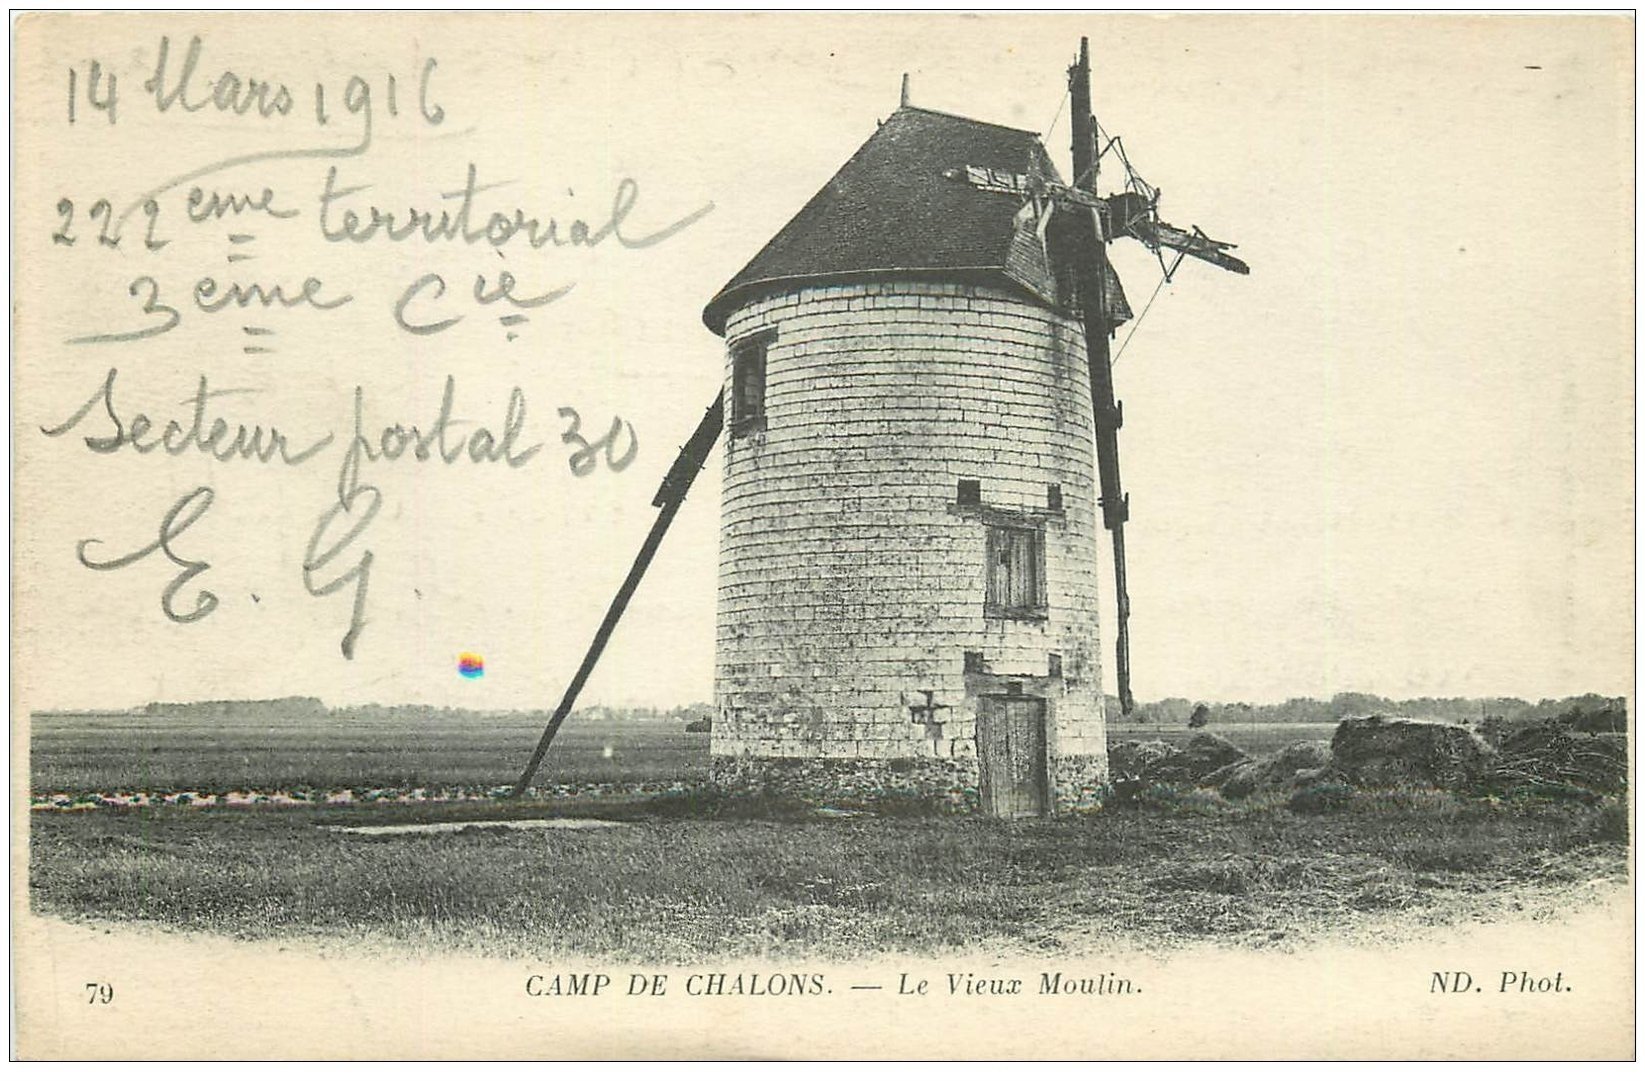 14 Mars 1916
222eme territorial
3eme Cie
Secteur postal 30
E. G.
79
CAMP DE CHALONS. — Le Vieux Moulin.
ND. Phot.